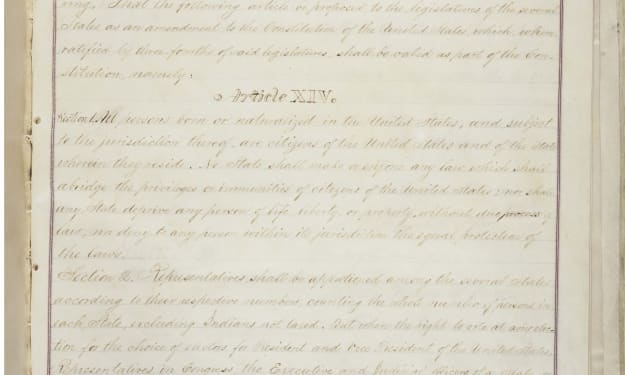 ring: That the following article be proposed to the legislatures of the several
States as an amendment to the Constitution of the United States, which, when
ratified by three fourths of said legislatures, shall be valid as part of the Con-
stitution, namely:
Article XIV.
Section 1. All persons born or naturalized in the United States, and subject
to the jurisdiction thereof, are citizens of the United States and of the State
wherein they reside. No State shall make or enforce any law which shall
abridge the privileges or immunities of citizens of the United States; nor shall
any State deprive any person of life, liberty, or property, without due process of
law; nor deny to any person within its jurisdiction the equal protection of
the laws.
Section 2. Representatives shall be apportioned among the several States
according to their respective numbers, counting the whole number of persons in
each State, excluding Indians not taxed. But when the right to vote at any elec-
tion for the choice of electors for President and Vice President of the United States,
Representatives in Congress, the Executive and Judicial officers of a State, or